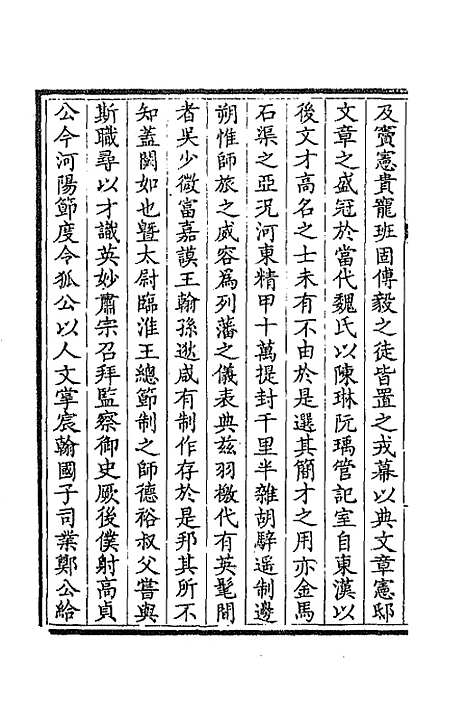 及竇憲貴寵班固傅毅之徒皆置之戎幕以典文章憲邸
文章之盛冠於當代魏氏以陳琳阮瑀管記室自東漢以
後文才高名之士未有不由於是選其簡才之用亦金馬
石渠之亞況河東精甲十萬提封千里半雜胡騎遥制邊
朔惟師旅之威容為列藩之儀表典茲羽檄代有英髦間
者吴少微富嘉謨王翰孫逖咸有制作存於是邦其所不
知蓋闕如也暨太尉臨淮王總節制之師德裕叔父嘗與
斯職尋以才識英妙肅宗召拜監察御史厥後僕射高貞
公今河陽節度令狐公以人文掌宸翰國子司業鄭公給